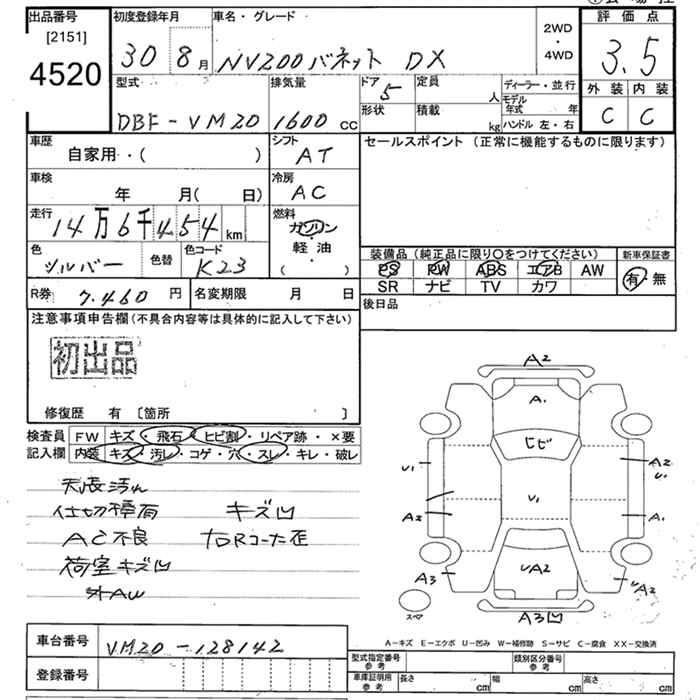 出品番号
[2151]
4520
初度登録年月
30 8月
車名・グレード
NV200バネット DX
2WD
・
4WD
評価点
3.5
外装 内装
C C
型式
DBF-VM20
排気量
1600 CC
ドア
5
形状
定員
人
積載
kg
ディーラー・並行
モデル
年式 年
ハンドル 左・右
車歴
自家用・( )
シフト
AT
セールスポイント (正常に機能するものに限ります)
車検
年 月( 日)
冷房
AC
走行
14万6千454 km
燃料
ガソリン
軽油
( )
色
シルバー
色替
色コード
K23
装備品(純正品に限り○をつけてください)
PS PW ABS エアB AW
SR ナビ TV カワ
新車保証書
有・無
R券 7,460円
名変期限 月 日
後日品
注意事項申告欄(不具合内容等は具体的に記入して下さい)
初出品
修復歴 有 [箇所 ]
検査員
記入欄
FW キズ・飛石・ヒビ割・リペア跡・×要
内装 キズ・汚レ・コゲ・穴・スレ・キレ・破レ
天張汚れ
仕切
キズ凹
AC不良
荷室キズ凹
外AW
A2
A1
ヒビ
U1
A2
U1
U1
A2
A1
A3
UA2
UA2
スペア
A3凹
A-キズ E-エクボ U-凹み W-補修跡 S-サビ C-腐食 XX-交換済
車台番号 VM20-128142
登録番号
型式指定番号
参考
類別区分番号
参考
車庫証明用
参考
長さ cm 幅 cm 高さ cm